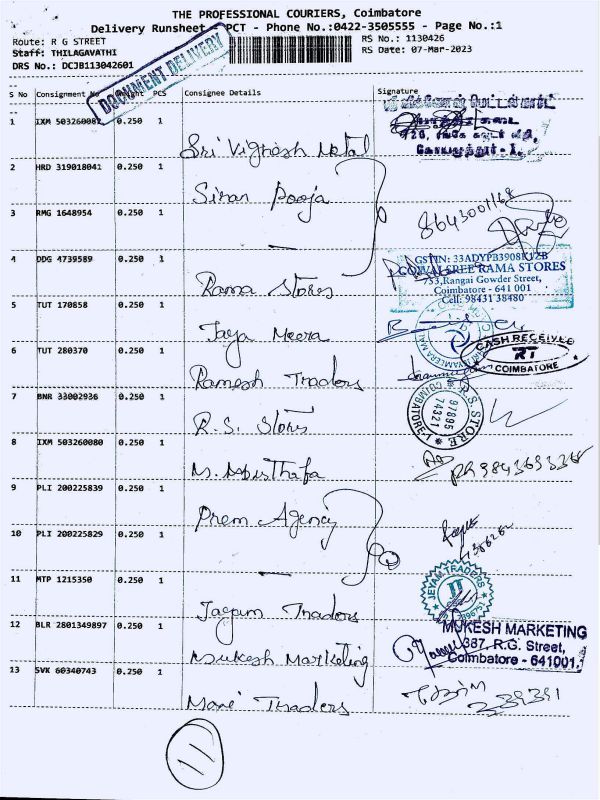 THE PROFESSIONAL COURIERS, Coimbatore
Delivery Runsheet PCT - Phone No.:0422-3505555 - Page No.:1
Route: R G STREET
RS No.: 1130426
Staff: THILAGAVATHI
RS Date: 07-Mar-2023
DRS No.: DCJB113042601
DOCUMENT DELIVERY
S No Consignment No Weight PCS Consignee Details Signature
1 IXM 503260082 0.250 1 Sri Vignesh Metal
2 HRD 319018041 0.250 1 Siran Pooja
3 RMG 1648954 0.250 1 —
8643001168
4 DDG 4739589 0.250 1 Rama Stores
GSTIN: 33ADYPB3908K1ZB
SREE RAMA STORES
753,Rangai Gowder Street,
Coimbatore - 641 001
Cell: 98431 38480
5 TUT 170858 0.250 1 Jaya Meera
6 TUT 280370 0.250 1 Ramesh Traders
CASH RECEIVED
RT
COIMBATORE
7 BNR 33002936 0.250 1 R.S. Stores
R.S. STORE
97895
74321
COIMBATORE-1
8 IXM 503260080 0.250 1 M. Musthafa
9 PLI 200225839 0.250 1 Prem Agency
10 PLI 200225829 0.250 1 —
11 MTP 1215350 0.250 1 Jayam Traders
JEYAM TRADERS
JT
12 BLR 2801349897 0.250 1 Mukesh Marketing
MUKESH MARKETING
387, R.G. Street,
Coimbatore - 641001.
13 SVK 60340743 0.250 1 Mani Traders
11